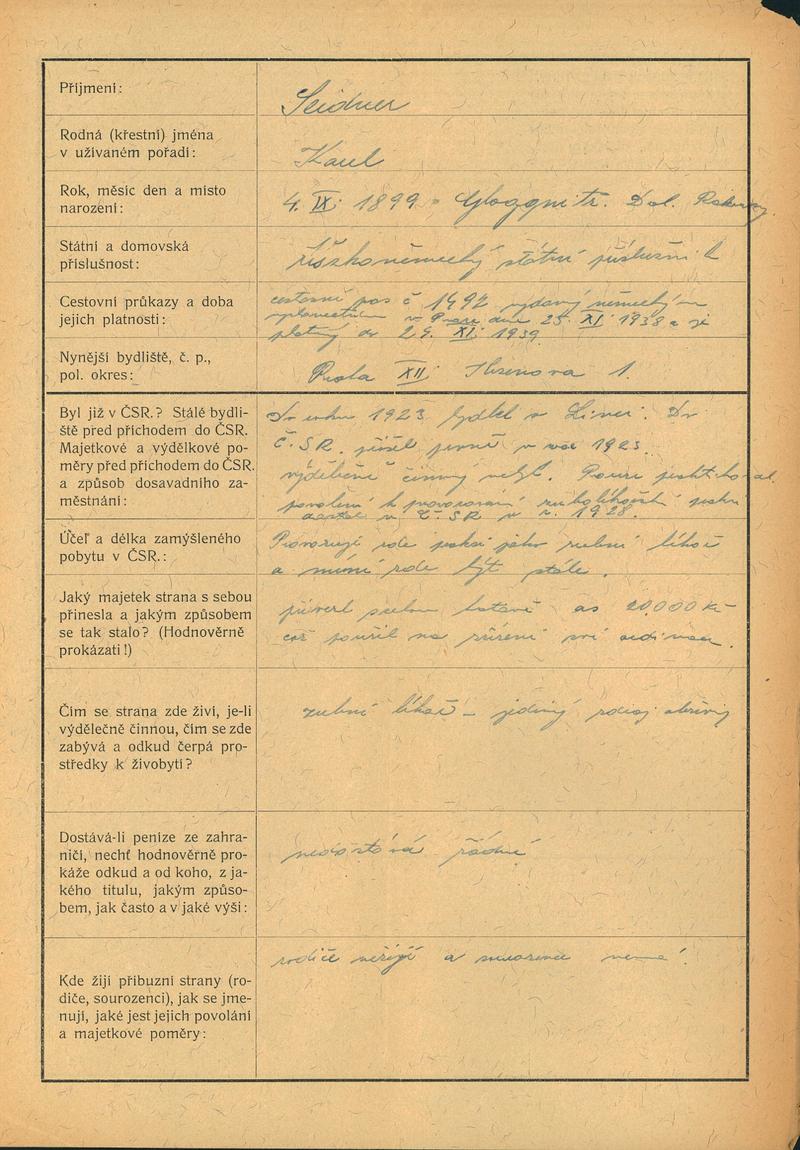 Příjmení:
Seidner
Rodná (křestní) jména
v užívaném pořadí:
Karel
Rok, měsíc den a místo
narození:
4. IX. 1899 Gloggnitz. Dol. Rakousy
Státní a domovská
příslušnost:
říškoněmecký státní příslušník
Cestovní průkazy a doba
jejich platnosti:
cestovní pas č 1492 vydaný německým
vyslanectvím v Praze dne 25. XI. 1938 a je
platný do XI. 1939
Nynější bydliště, č. p.,
pol. okres:
Praha XII 1.
Byl již v ČSR.? Stálé bydli-
ště před příchodem do ČSR.
Majetkové a výdělkové po-
měry před příchodem do ČSR.
a způsob dosavadního za-
městnání:
Do roku 1923 bydlel v Do
Č.SR. přišel prvně v roce 1923.
výdělečně činný nebyl.
povolení k provozování zubolékařské praxe
dostal v Č.SR v r. 1928.
Účel a délka zamýšleného
pobytu v ČSR.:
Provozuji zde praksi jako zubní lékař
a míní zde být stále.
Jaký majetek strana s sebou
přinesla a jakým způsobem
se tak stalo? (Hodnověrně
prokázati!)
přivezl sebou hotově as 20.000 Kč
což použil na zřízení své ordinace.
Čím se strana zde živí, je-li
výdělečně činnou, čím se zde
zabývá a odkud čerpá pro-
středky k živobytí?
zubní lékař – jediný zdroj obživy
Dostává-li peníze ze zahra-
ničí, nechť hodnověrně pro-
káže odkud a od koho, z ja-
kého titulu, jakým způso-
bem, jak často a v jaké výši:
nedostává žádné
Kde žijí příbuzní strany (ro-
diče, sourozenci), jak se jme-
nují, jaké jest jejich povolání
a majetkové poměry:
rodiče nežijí a sourozence nemá.